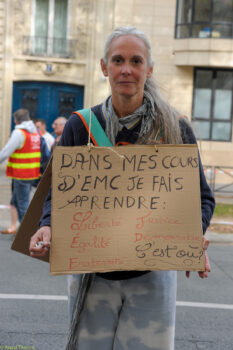 DANS MES COURS
D'EMC JE FAIS
APPRENDRE :
Liberté Justice
Egalité Démocratie
Fraternité C'est où ?